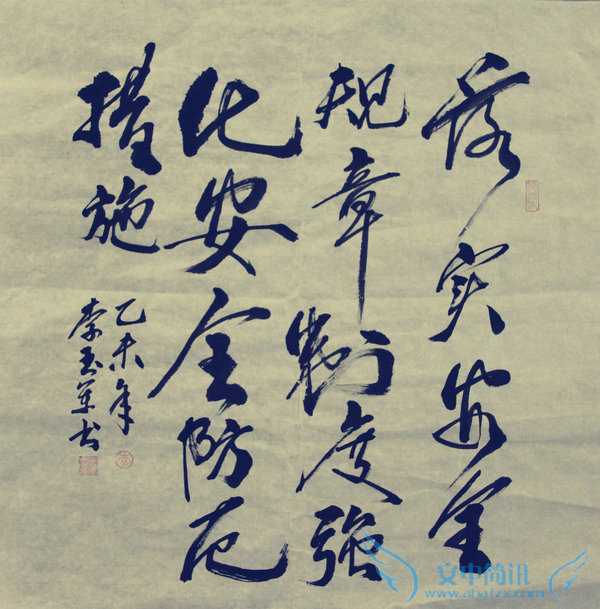 落实安全
规章制度强
化安全防范
措施
乙未年
李玉军书
安中简讯